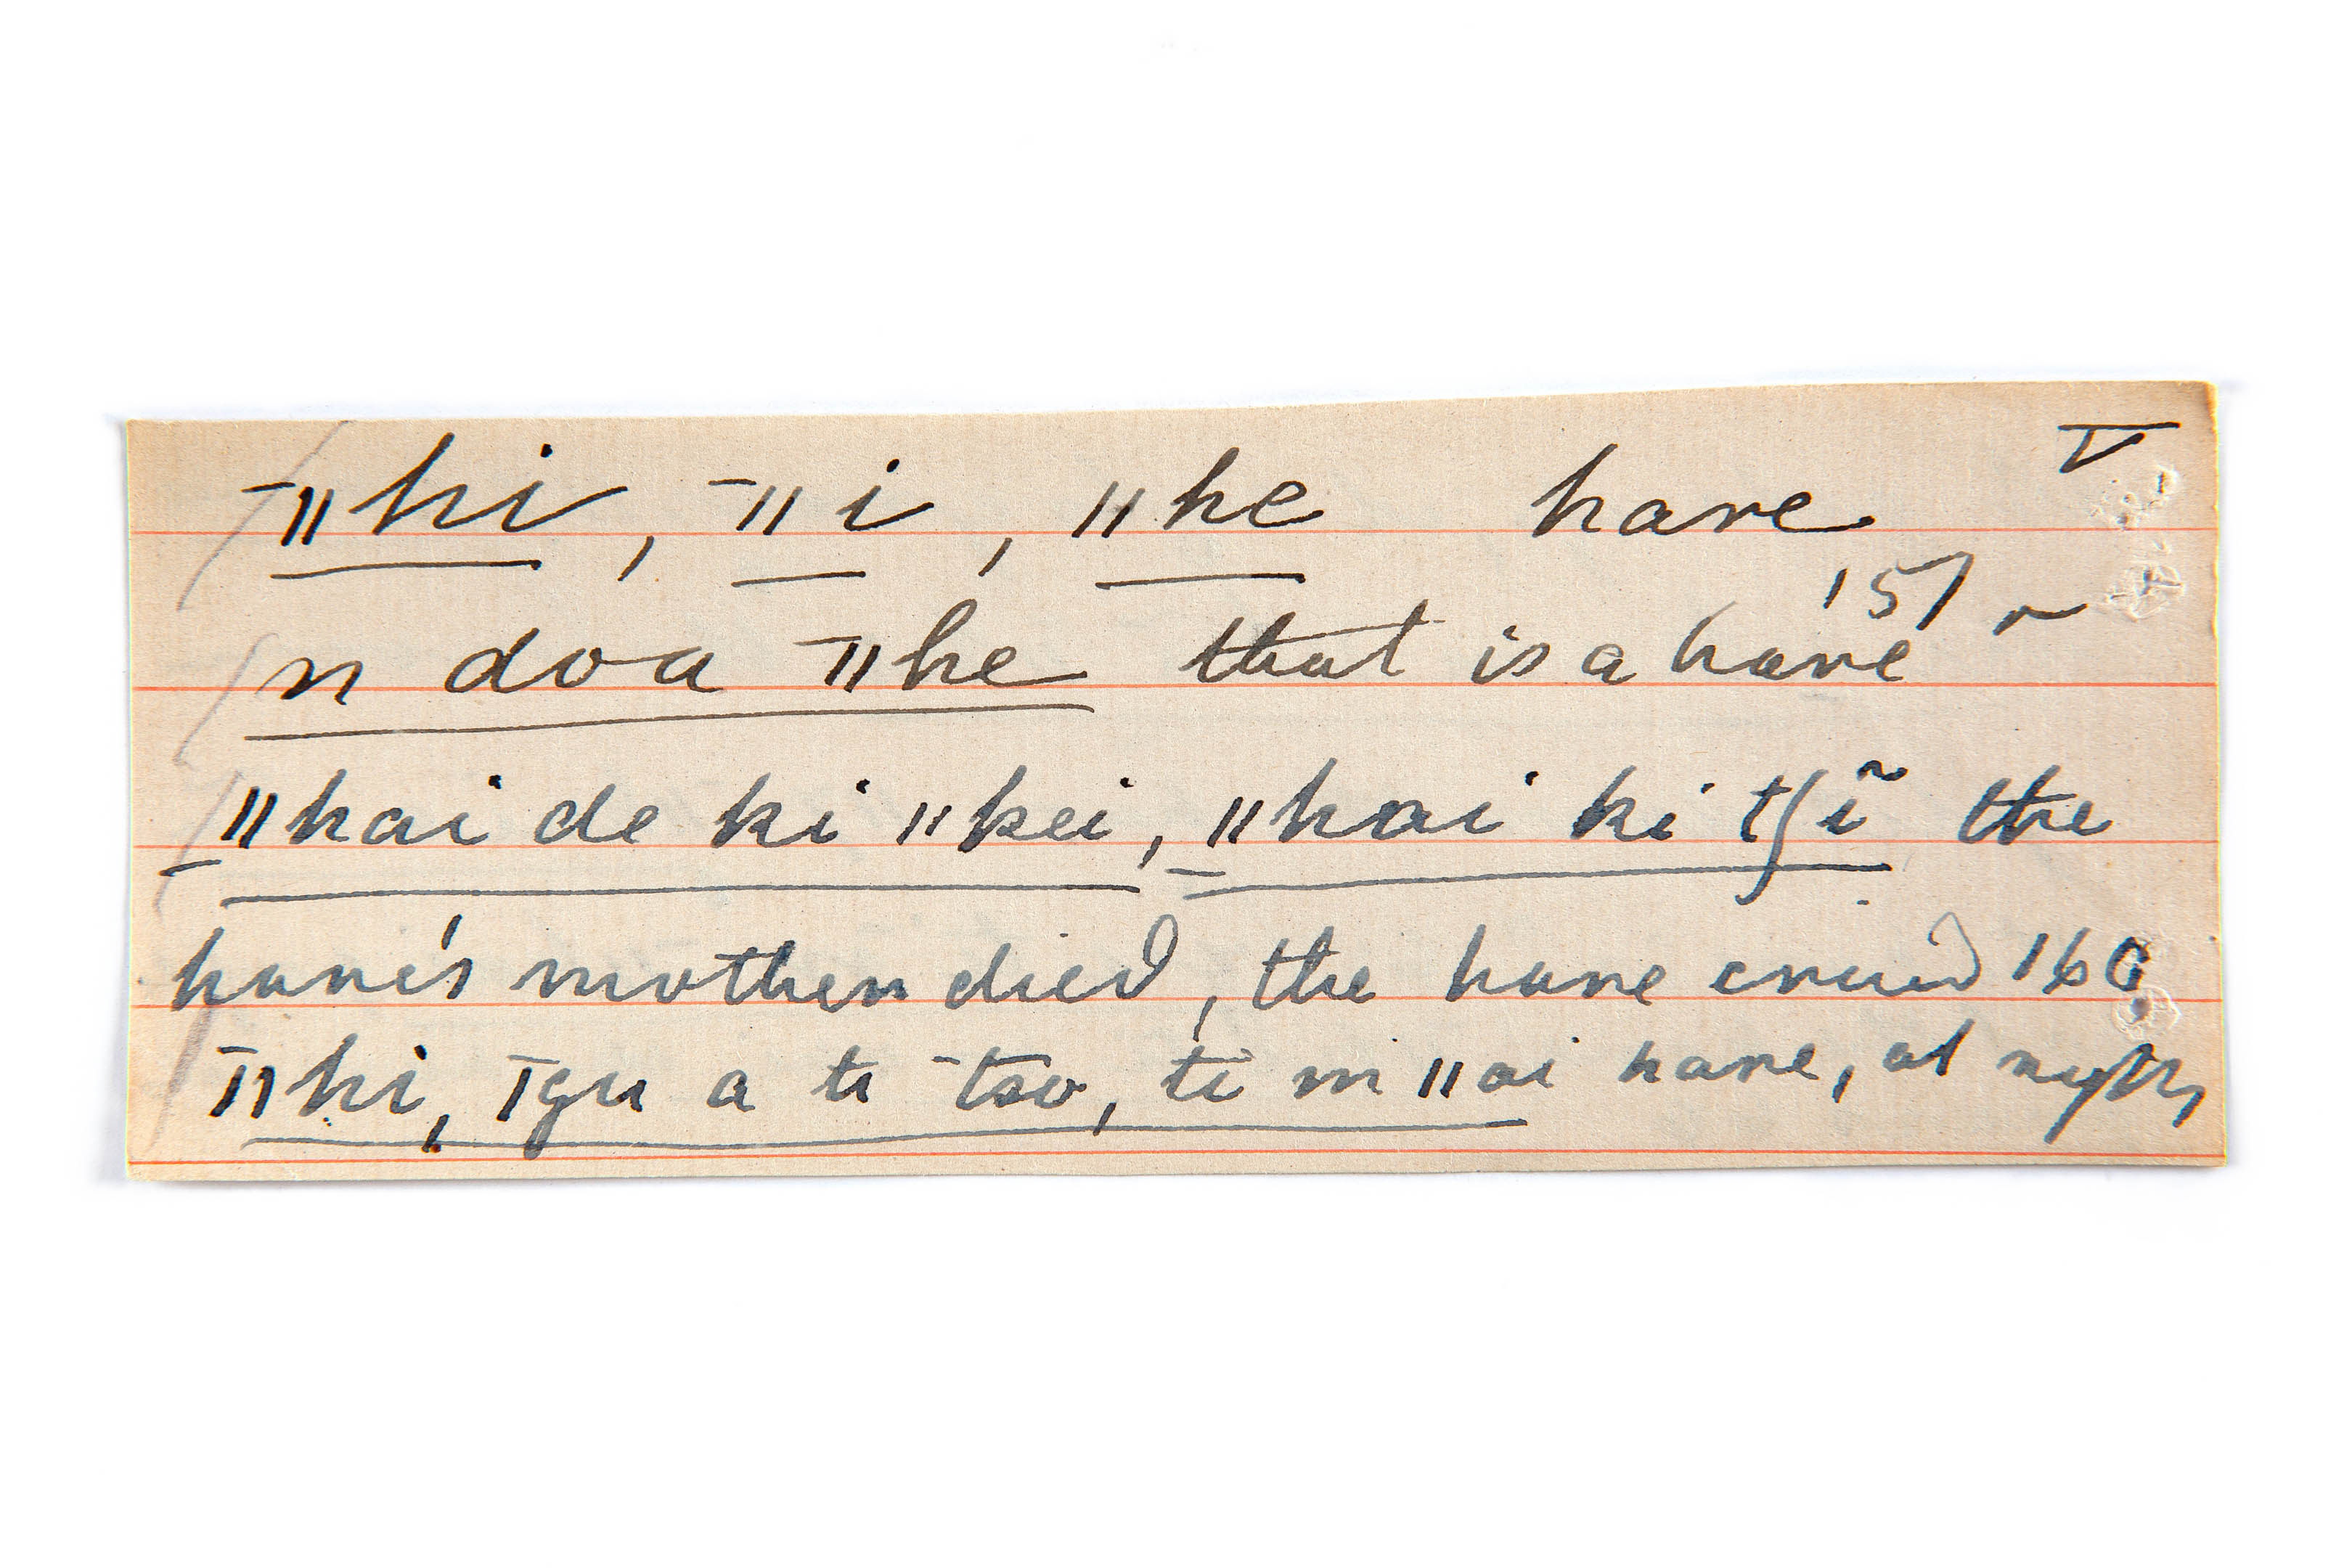 ˉǁhi, ˉǁi, ǁhe hare V
n doa ˉǁhe that is a hare 157 r
ˍǁhai de ki ǁkei, ˍǁhai ki tʃĩ the
hare's mother died, the hare cried 160
ˉǁhi, ˉǀgu a ti ˉtso, ti m ǁai hare, at night,